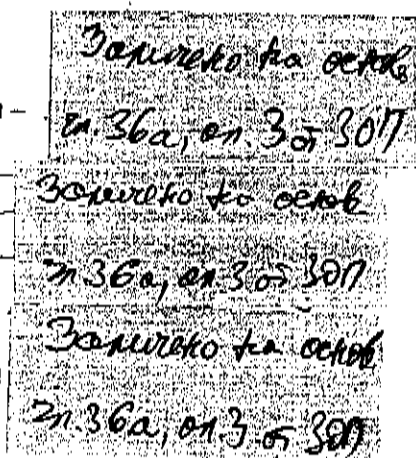 Заличено на основ
чл. 36а, ал. 3 от ЗОП
Заличено на основ
чл. 36а, ал. 3 от ЗОП
Заличено на основ
чл. 36а, ал. 3 от ЗОП